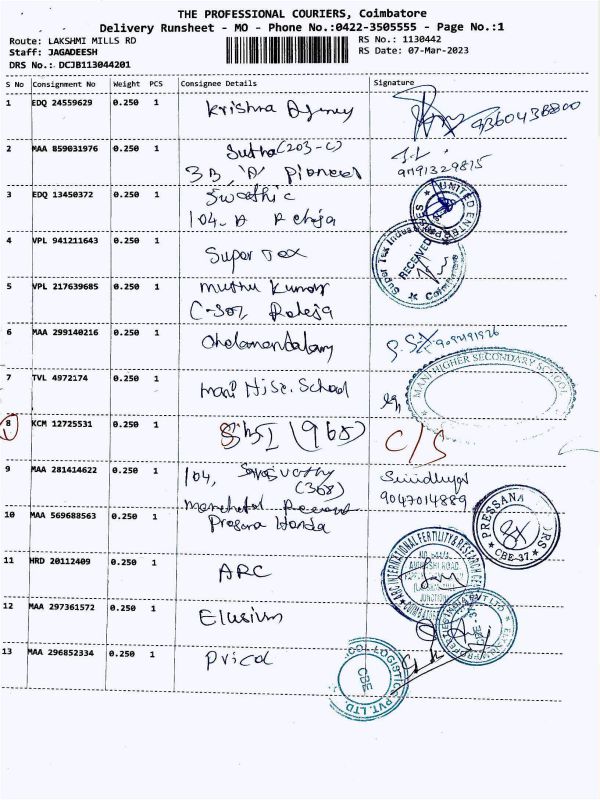 THE PROFESSIONAL COURIERS, Coimbatore
Delivery Runsheet - MO - Phone No.:0422-3505555 - Page No.:1
Route: LAKSHMI MILLS RD RS No.: 1130442
Staff: JAGADEESH RS Date: 07-Mar-2023
DRS No.: DCJB113044201
S No Consignment No Weight PCS Consignee Details Signature
1 EDQ 24559629 0.250 1 Krishna Agency 9360438800
2 MAA 859031976 0.250 1 Sutha (203-C)
3B, 'A' Pioneer 9791329815
3 EDQ 13450372 0.250 1 Swathi C
104-A Raheja
UNITED ENTERPRISES
4 VPL 941211643 0.250 1 Super Tex
Super Tex Industries RECEIVED Coimbatore
5 VPL 217639685 0.250 1 Muthu Kumar
C-302 Raheja
6 MAA 299140216 0.250 1
7 TVL 4972174 0.250 1 Mani Hr. Sec. School
MANI HIGHER SECONDARY SCHOOL
8 KCM 12725531 0.250 1 SBI (968) C/S
9 MAA 281414622 0.250 1 104, Saraswathy
(368) 9047014889
10 MAA 569688563 0.250 1 Prasana Honda
PRESSANA CBE-37
11 HRD 20112409 0.250 1 ARC
ARC INTERNATIONAL FERTILITY & RESEARCH
12 MAA 297361572 0.250 1 Elusium
13 MAA 296852334 0.250 1 Pricol
LOGISTICS PVT. LTD. CBE